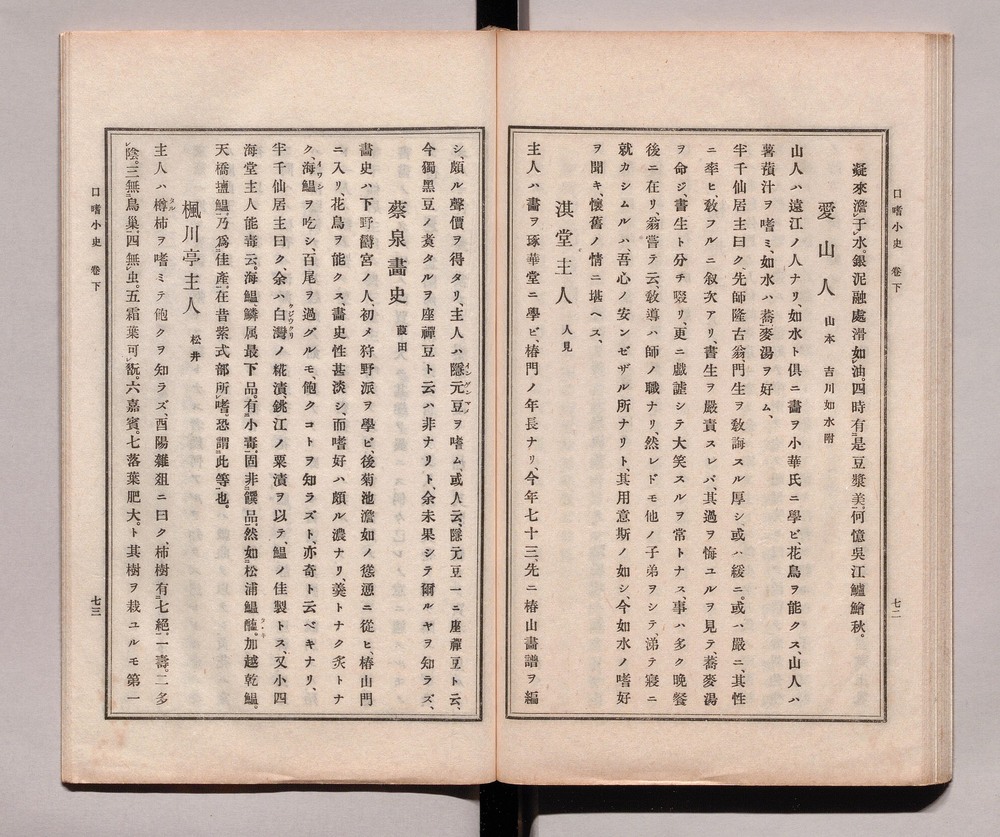 口嗜小史 卷下 七二
凝來澹于水。銀泥融處滑如油。四時有是豆漿美。何憶吳江鱸鱠秋。
愛山人 山本 吉川如水附
山人ハ遠江ノ人ナリ、如水ト俱ニ畵ヲ小華氏ニ學ビ、花鳥ヲ能クス、山人ハ
薯蕷汁ヲ嗜ミ、如水ハ蕎麥湯ヲ好ム、
半千仙居主曰ク、先師隆古翁、門生ヲ敎誨スル厚シ、或ハ緩ニ。或ハ嚴ニ、其性
ニ率ヒ、敎フルニ叙次アリ、書生ヲ嚴責スレバ、其過ヲ悔ユルヲ見テ、蕎麥湯
ヲ命ジ、書生ト分チ啜リ、更ニ戲謔シテ大笑スルヲ常トナス、事ハ多ク晩餐
後ニ在リ、翁嘗テ云、敎導ハ師ノ職ナリ、然レドモ他ノ子弟ヲシテ、涕テ寢ニ
就カシムルハ、吾心ノ安ンゼザル所ナリト、其用意斯ノ如シ、今如水ノ嗜好
ヲ聞キ、懷舊ノ情ニ堪ヘス、
淇堂主人 人見
主人ハ畵ヲ琢華堂ニ學ビ、椿門ノ年長ナリ、今年七十三、先ニ椿山畵譜ヲ編
シ、頗ル聲價ヲ得タリ、主人ハ隱元豆ヲ嗜ム、或人云、隱元豆一ニ座禪豆ト云、
今獨黑豆ノ煑タルヲ座禪豆ト云ハ非ナリト、余未果シテ爾ルヤヲ知ラズ、
蔡泉畵史 葭田
畵史ハ下野爵宮ノ人、初メ狩野派ヲ學ビ、後菊池澹如ノ慫慂ニ從ヒ、椿山門
ニ入リ、花鳥ヲ能クス、畵史性甚淡シ、而嗜好ハ頗ル濃ナリ、羮トナク炙トナ
ク、海鰮ヲ吃シ、百尾ヲ過グルモ、飽クコトヲ知ラズト、亦奇ト云ベキナリ、
半千仙居主曰ク、余ハ白灣ノ糀漬、銚江ノ粟漬ヲ以テ、鰮ノ佳製トス、又小四
海堂主人能毒云。海鰮、鱗属最下品。有小毒。固非饌品。然如松浦鰮醢。加越乾鰮。
天橋壚鰮。乃爲佳產。在昔紫式部所嗜。恐謂此等也。
楓川亭主人 松井
主人ハ樽柿ヲ嗜ミテ飽クヲ知ラズ、酉陽雜爼ニ曰ク、柿樹有七絕。一壽。二多
陰。三無鳥巢。四無虫。五霜葉可翫。六嘉賓。七落葉肥大。ト其樹ヲ栽ユルモ第一
口嗜小史 卷下 七三